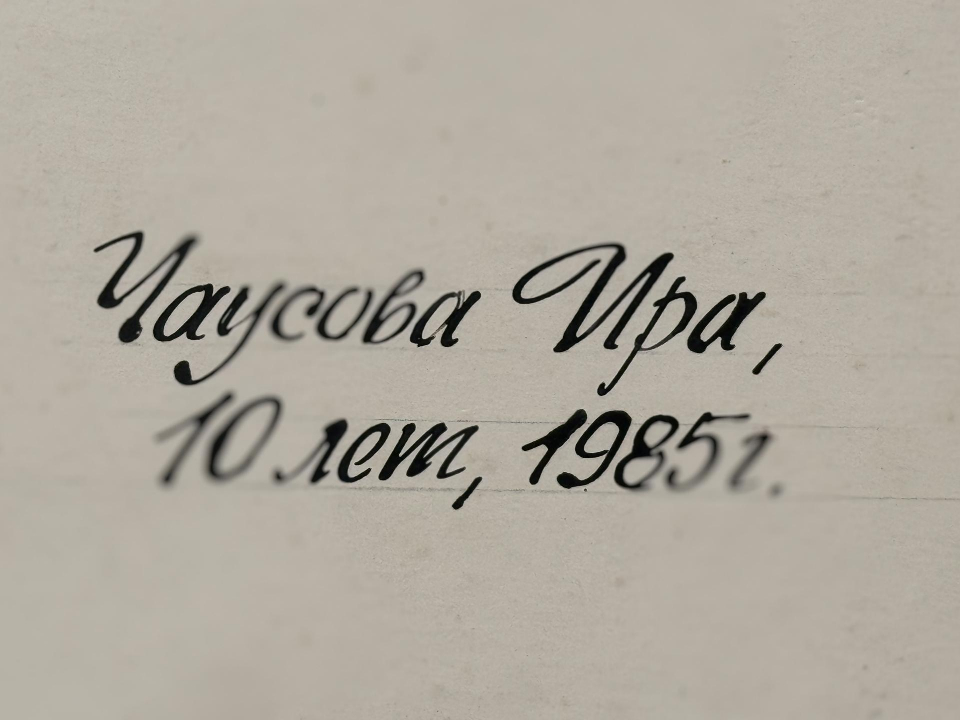 Чаусова Ира,
10 лет, 1985г.